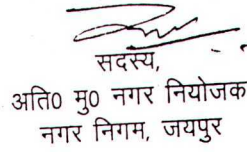 सदस्य,
अति0 मु0 नगर नियोजक
नगर निगम, जयपुर